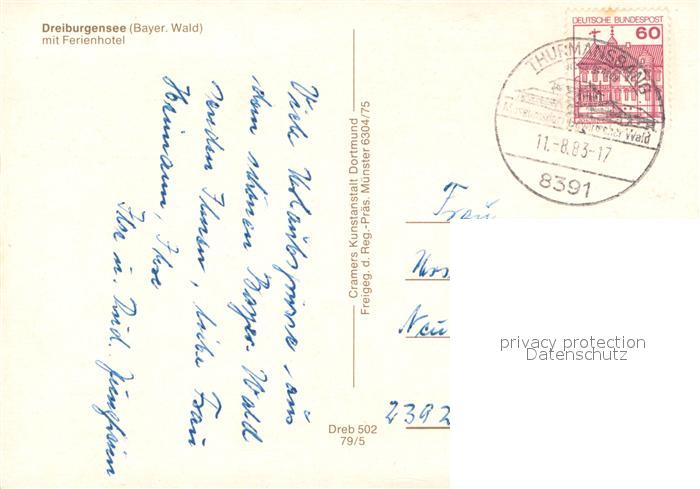 Dreiburgensee (Bayer. Wald)
mit Ferienhotel
Viele Urlaubsgrüsse aus
dem schönen Bayer. Wald
senden Ihnen, liebe Frau
Heimann, Ihre
Ilse u.
Cramers Kunstanstalt Dortmund
Freigeg. d. Reg.-Präs. Münster 6304/75
Dreb 502
79/5
DEUTSCHE BUNDESPOST
60
THURMANSBANG
Bayerischer Wald
11.-8.83-17
8391
Frau
Neu
2392
privacy protection
Datenschutz